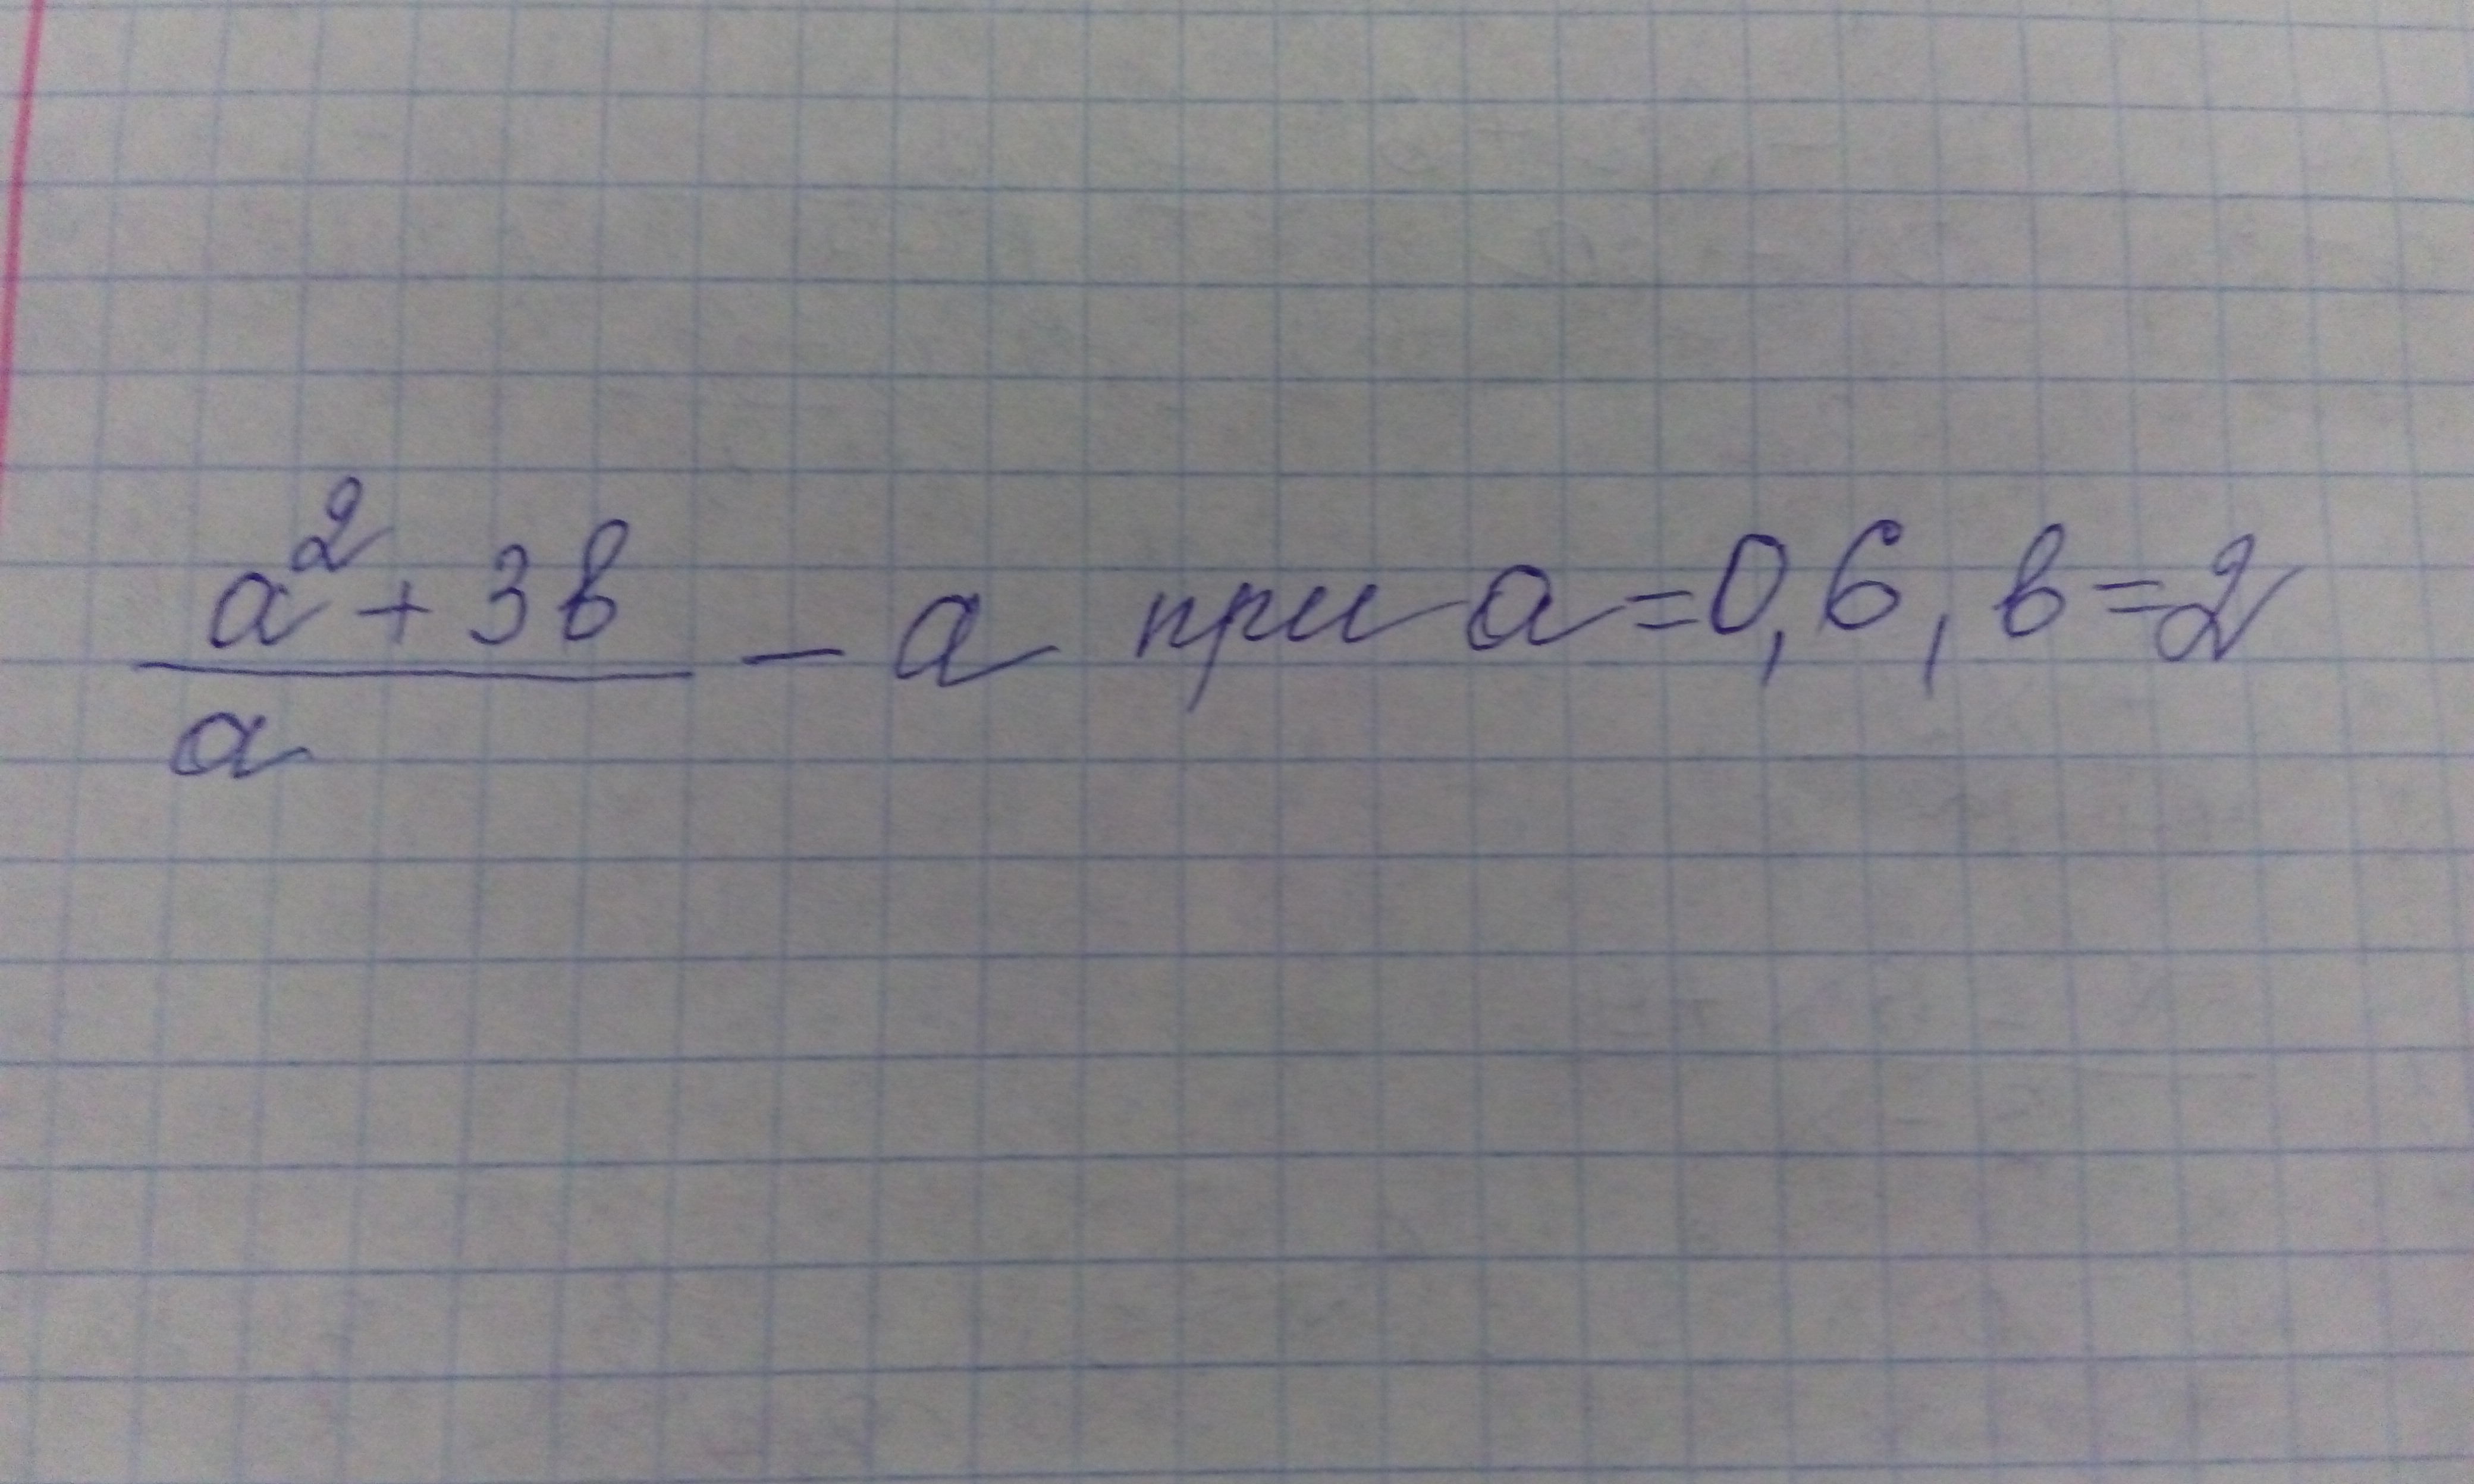 a² + 3b / a - a при a = 0,6, b = 2